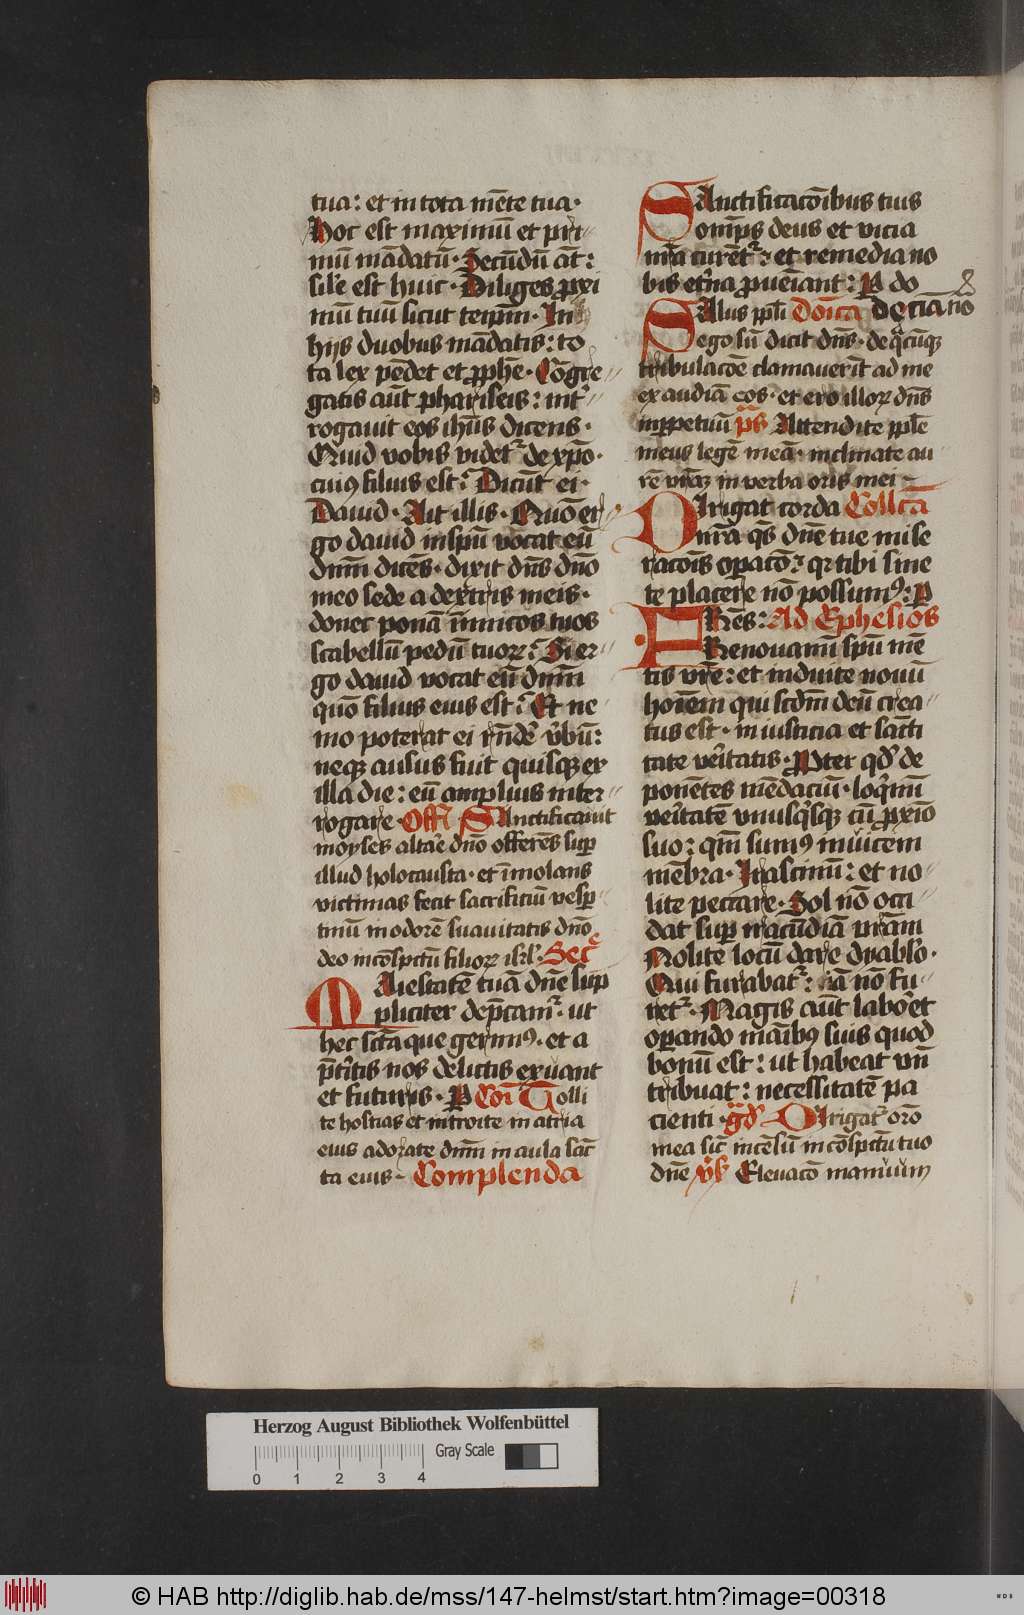 tua: et in tota mēte tua·
Hoc est maximū et pri
mū mādatū· Secūdū aūt:
sil'e est huic· Diliges proxi
mū tuū sicut teipm̄· In
hijs duobus mādatis: to
ta lex pēdet et prophē· Cōgre
gatis aūt phariseis: int'
rogauit eos ihūs dicens·
Quid vobis videtr̄ de xp̄o·
cuiꝰ filius est: Dicūt ei·
Dauid· Ait illis· Quō er
go dauid in spū vocat eū
dnm̄ dicēs· dixit dn̄s dn̄o
meo sede a dextris meis·
donec ponā inimicos tuos
scabellū pedū tuoꝝ: Si er
go dauid vocat eū dnm̄
quō filius eius est: Et ne
mo poterat ei rn̄dē v̄bū:
neqꝫ ausus fuit quisqꝫ ex
illa die: eū amplius inter
rogare· Off Sanctificauit
moyses altar̄e dn̄o offerēs sup̄
illud holocausta· et īmolans
victimas fecit sacrificiū vesp
tinū in odorē suauitatis dn̄o
deo in cōspc̄tu filioꝝ isrl'· Sec̄
Maiestatē tuā dn̄e supp
pliciter dep̄camr̄· ut
hec sctā que gerimꝰ· et a
p̄teritis nos delictis exuant
et futuris· P Cō Tolli
te hostias et introite in atria
eius adorate dnm̄ in aula sāc
ta eius· Complenda
Sanctificacōibus tuis
omps̄ deus et vicia
nr̄a curētr̄: et remedia no
bis eterna proueīant: P do
Salus ppl̄i Doīca deciāno
ego sū dicit dn̄s· de qcūqꝫ
tribulacōe clamauerīt ad me
exaudiā eos· et ero illoꝝ dn̄s
inppetuū ps̄ Attendite pplē
meus legē meā· inclinate au
rē vrāꝫ in verba oris mei
Dirigat corda Collcā
nr̄a qs̄ dn̄e tue mise
racoīs opacō: qr tibi sine
te placere nō possumꝰ: P
FRēs: Ad Ephesios
Renouamī spū mē
tis vrē: et induite nouū
hoīem qui scdm̄ deū crea
tus est· in iusticia et sācti
tate ve'itatis· Pter qd' de
ponētes mēdaciū· loqmī
ve'itatē vnusqsqꝫ cū proxīo
suo: qm̄ sumꝰ inuicem
mēbra· Irascimī: et no
lite peccare· Sol nō occi
dat sup iracūdiā vrām
Nolite locū dare dyablo·
Qui furabatr̄: iā nō fu
retr̄· Magis aūt labōet
opando manībꝰ suis quod
bonū est: ut habeat vn̄
tribuat: necessitatē pa
cienti· gd' Dirigat' orō
mea sic̄ incēsū in cōspc̄tu tuo
dn̄e v̄s Eleuacō manuum
Herzog August Bibliothek Wolfenbüttel
Gray Scale
0 1 2 3 4
© HAB http://diglib.hab.de/mss/147-helmst/start.htm?image=00318